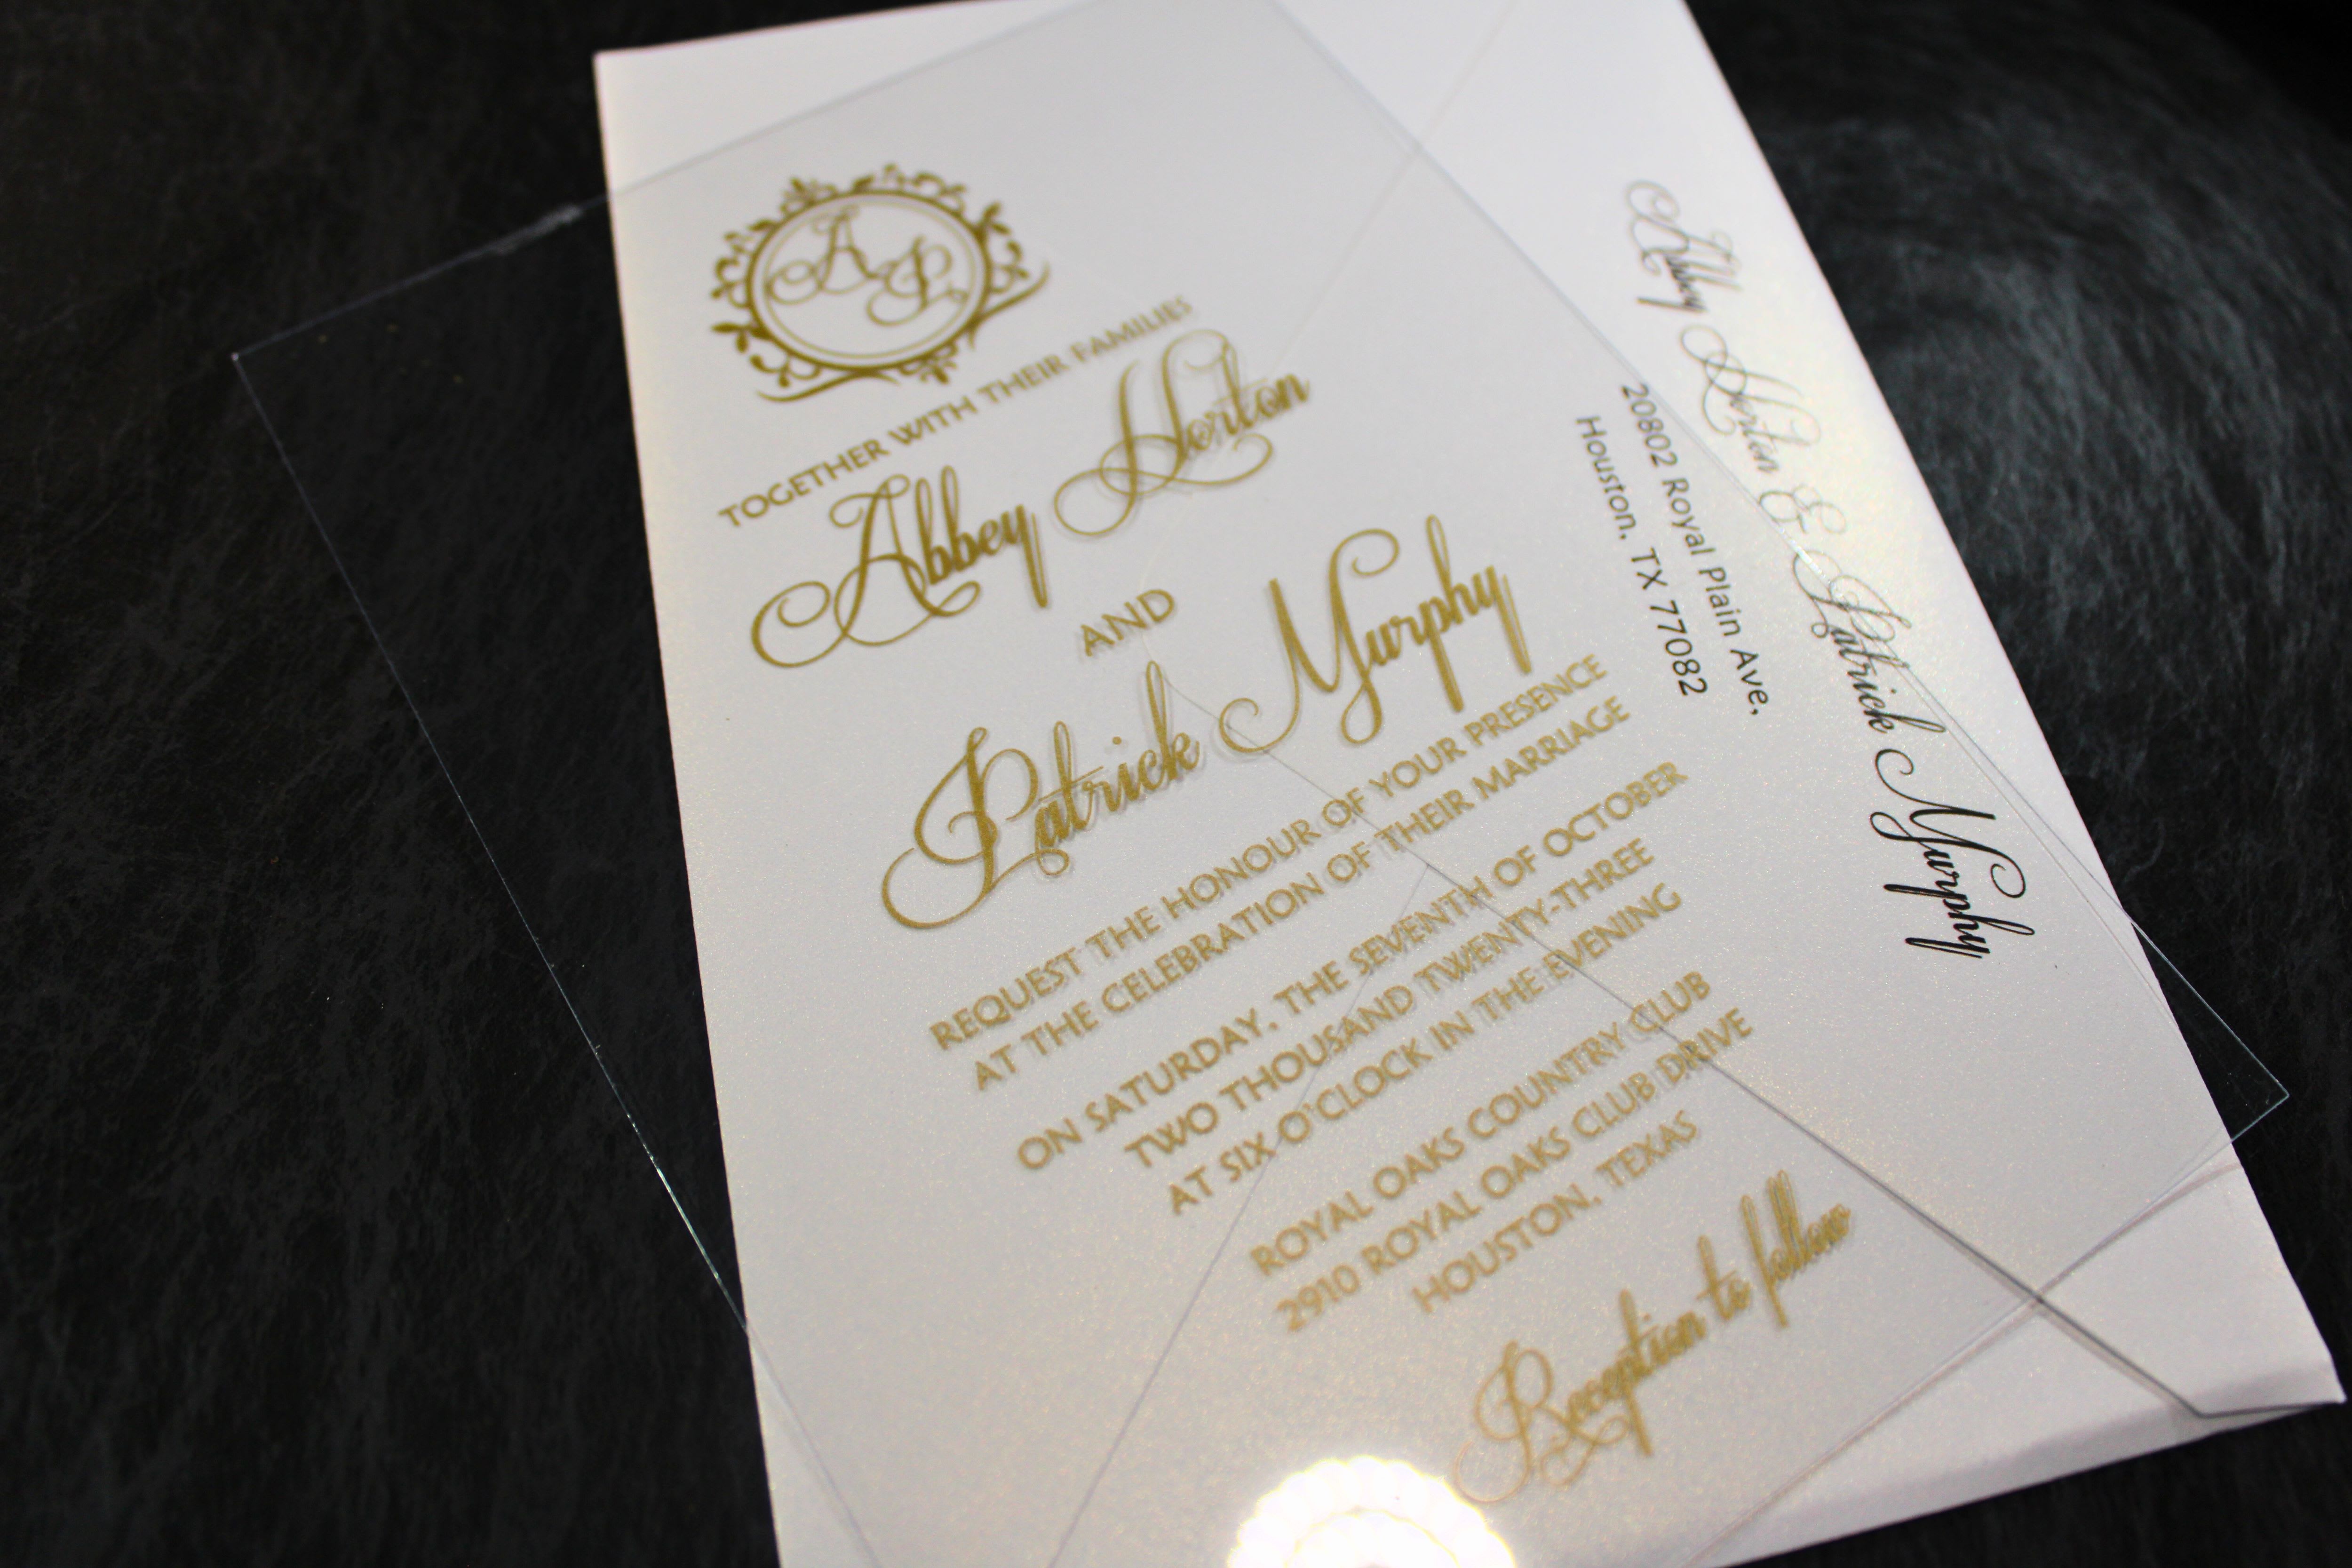 AP
TOGETHER WITH THEIR FAMILIES
Abbey Horton
AND
Patrick Murphy
REQUEST THE HONOUR OF YOUR PRESENCE
AT THE CELEBRATION OF THEIR MARRIAGE
ON SATURDAY, THE SEVENTH OF OCTOBER
TWO THOUSAND TWENTY-THREE
AT SIX O'CLOCK IN THE EVENING
ROYAL OAKS COUNTRY CLUB
2910 ROYAL OAKS CLUB DRIVE
HOUSTON, TEXAS
Reception to follow
Abbey Horton & Patrick Murphy
20802 Royal Plain Ave,
Houston, TX 77082